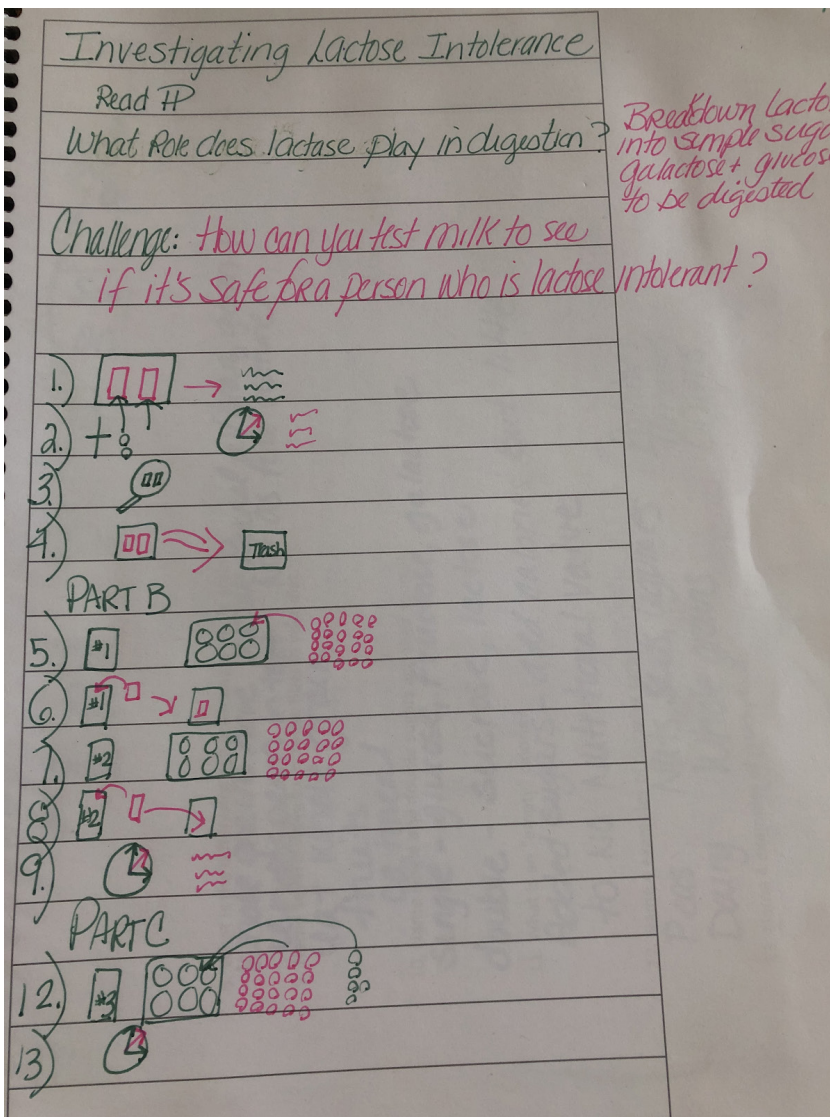 Investigating Lactose Intolerance
Read
What Role does lactase play in digestion?
Breakdown Lacto
into simple suga
galactose + glucos
to be digested
Challenge: How can you test milk to see
if it's safe for a person who is lactose intolerant?
1.)
2.) +
3.)
4.) Trash
PART B
5.) #1
6.) #1
7.) #2
8.) #2
9.)
PART C
12.) #3
13.)